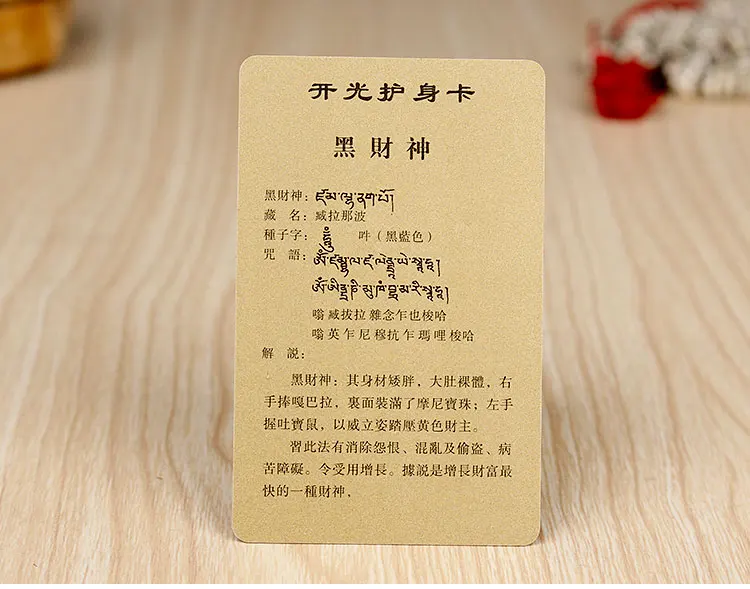 开光护身卡
黑財神
黑財神：
藏 名：臧拉那波
種子字： 吽（黑藍色）
咒 語：
嗡 臧拔拉 雜念乍也梭哈
嗡 英 乍 尼 穆抗乍 瑪 哩 梭哈
解 説：
黑財神：其身材矮胖，大肚裸體，右
手捧嘎巴拉，裏面裝滿了摩尼寶珠；左手
握吐寶鼠，以威立姿踏壓黄色財主。
習此法有消除怨恨、混亂及偷盗、病
苦障礙。令受用增長。據説是增長財富最
快的一種財神，